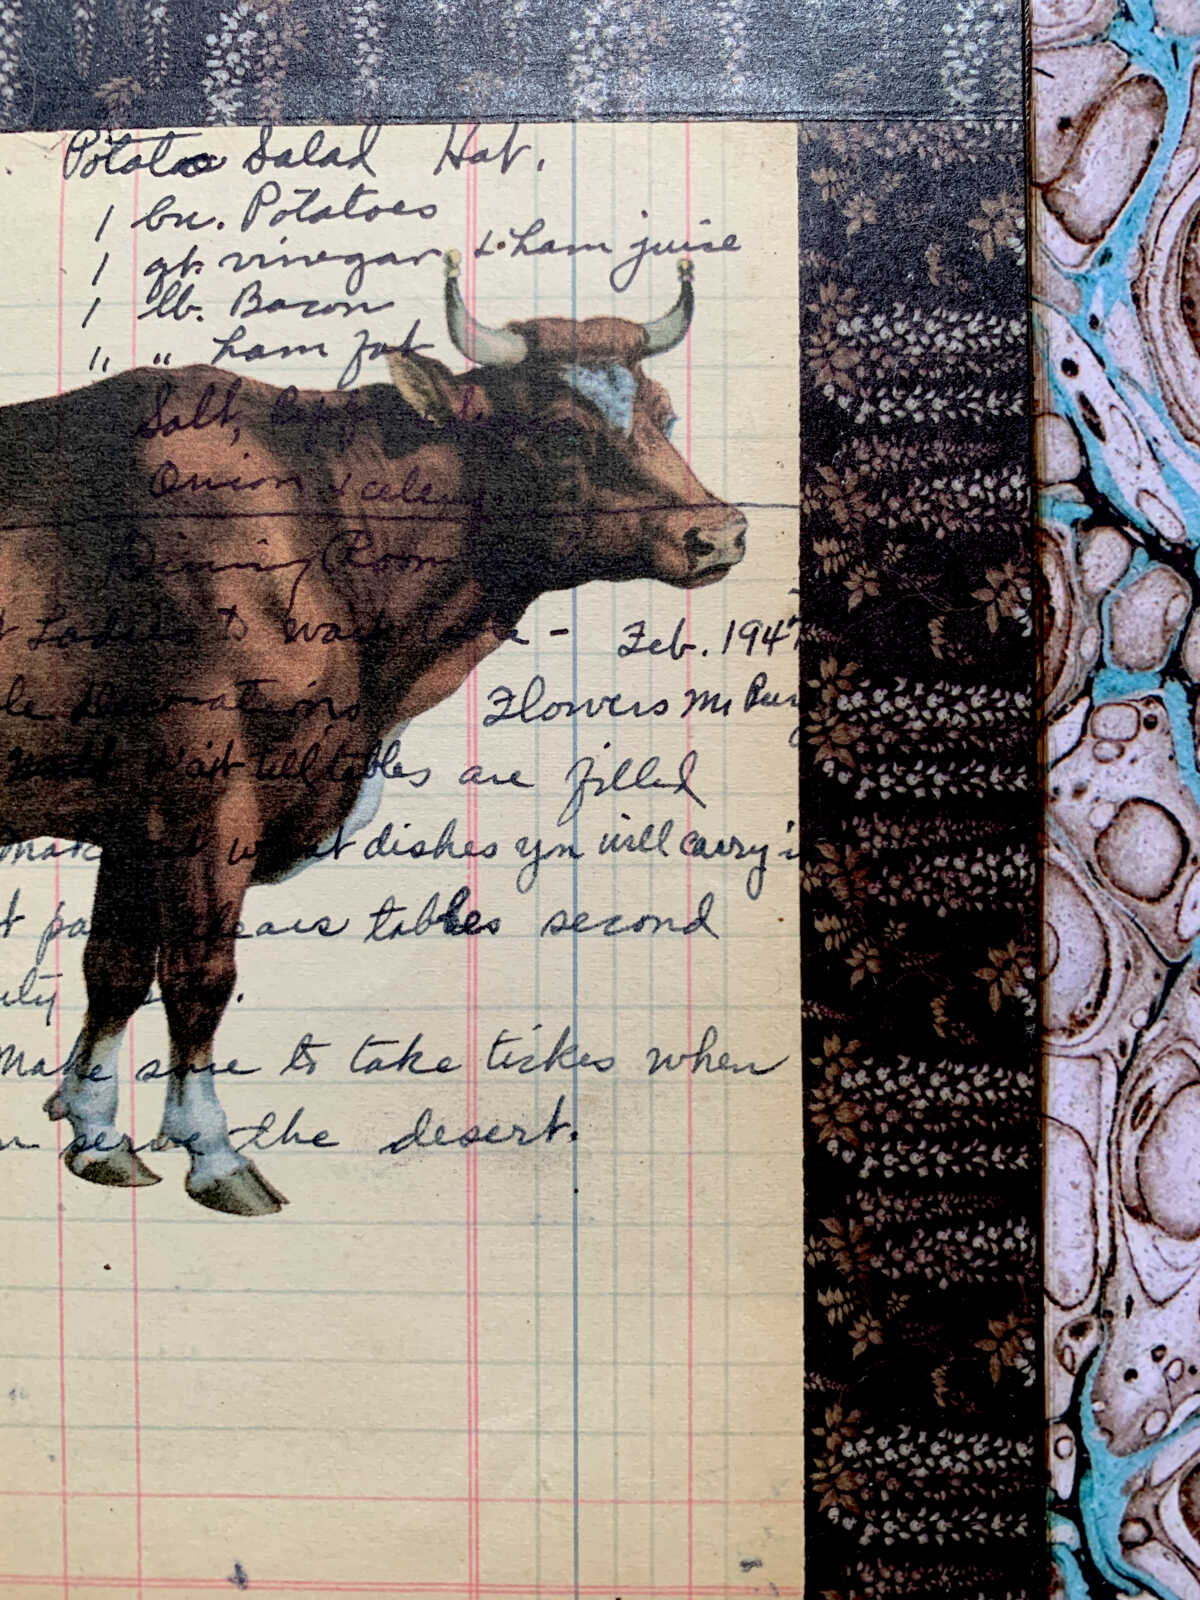 Potatoe Salad Hot.
1 bu. Potatoes
1 qt. vinegar & ham juise
1 lb. Bacon
" " ham fat
Salt,
Onion & celery
Dinning Room
to Feb. 194
Decorations Flowers Mr
wait till tables are filled
what dishes you will carry
tables second
Make sure to take tickes when
serve the desert.